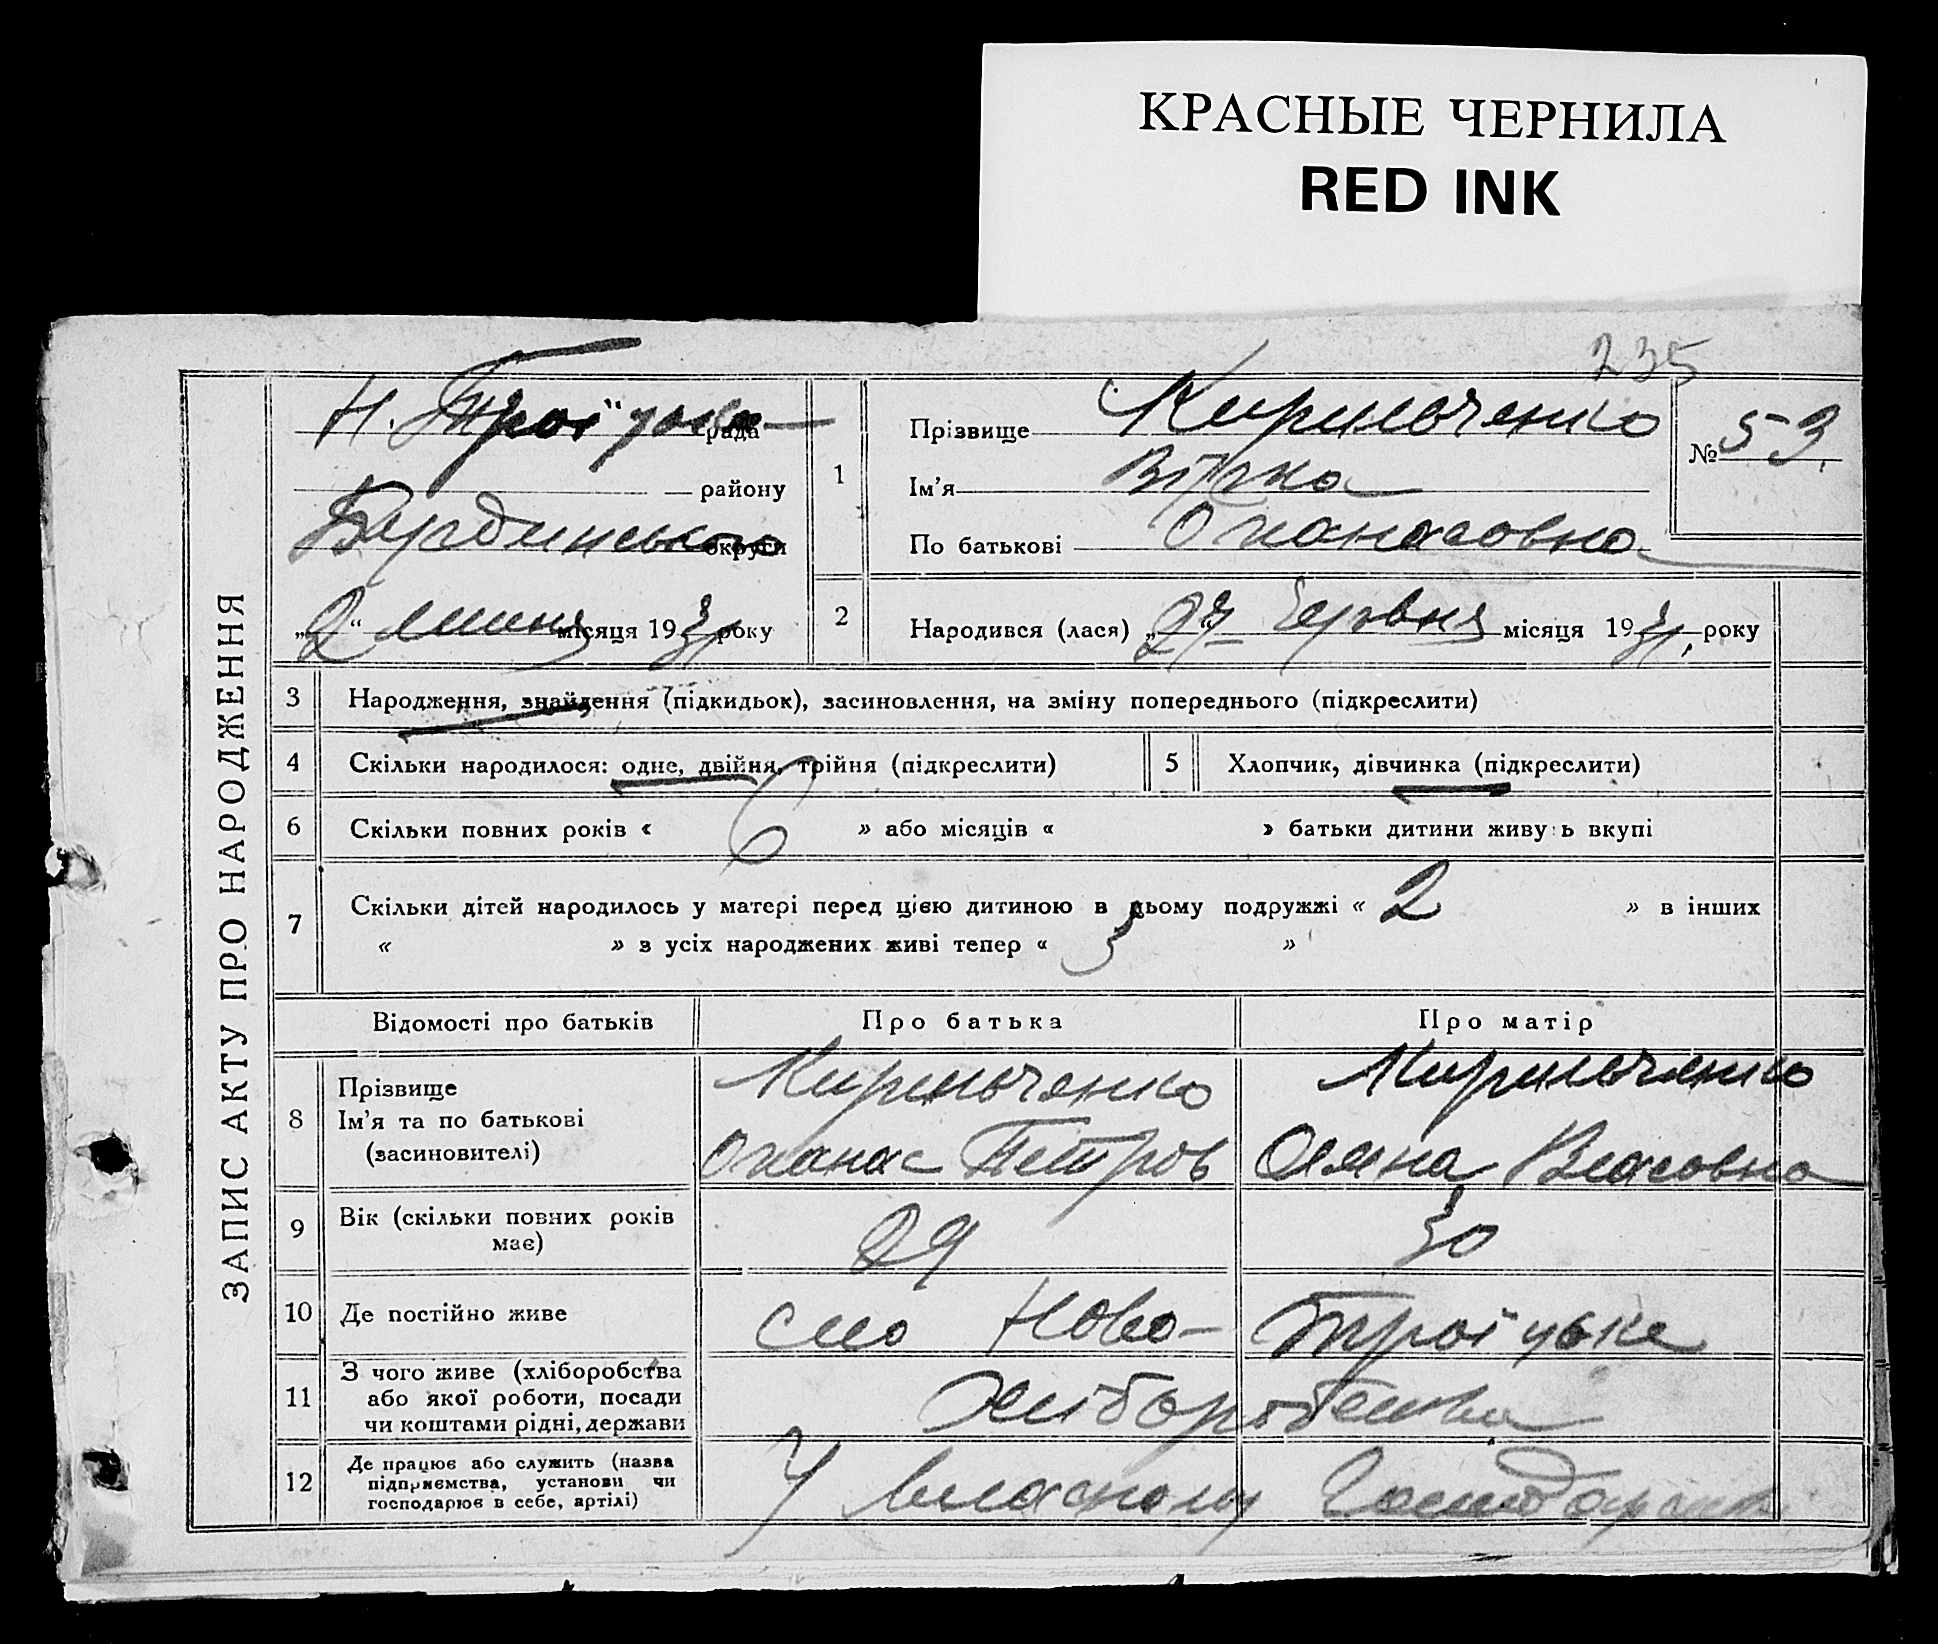 КРАСНЫЕ ЧЕРНИЛА
RED INK
235
ЗАПИС АКТУ ПРО НАРОДЖЕННЯ
Н. Троїцька рада
району
Бердинського округи
„2“ липня місяця 1931 року
1
Прізвище Кирильченко
Ім'я Вірка
По батькові Опанасовна
№ 53.
2 Народився (лася) „27“ Червня місяця 1931. року
3 Народження, знайдення (підкидьок), засиновлення, на зміну попереднього (підкреслити)
4 Скільки народилося: одне, двійня, трійня (підкреслити)
5 Хлопчик, дівчинка (підкреслити)
6 Скільки повних років « 6 » або місяців « » батьки дитини живуть вкупі
7 Скільки дітей народилось у матері перед цією дитиною в цьому подружжі « 2 » в інших
« » з усіх народжених живі тепер « 3 »
Відомості про батьків Про батька Про матір
8 Прізвище
Ім'я та по батькові
(засиновителі)
Кирильченко
Опанас Петров
Кирильченко
Оляна Власовна
9 Вік (скільки повних років
має)
29 30
10 Де постійно живе село Ново-Троїцьке
11 З чого живе (хліборобства
або якої роботи, посади
чи коштами рідні, держави
Хліборобства
12 Де працює або служить (назва
підприємства, установи чи
господарює в себе, артілі)
У власному